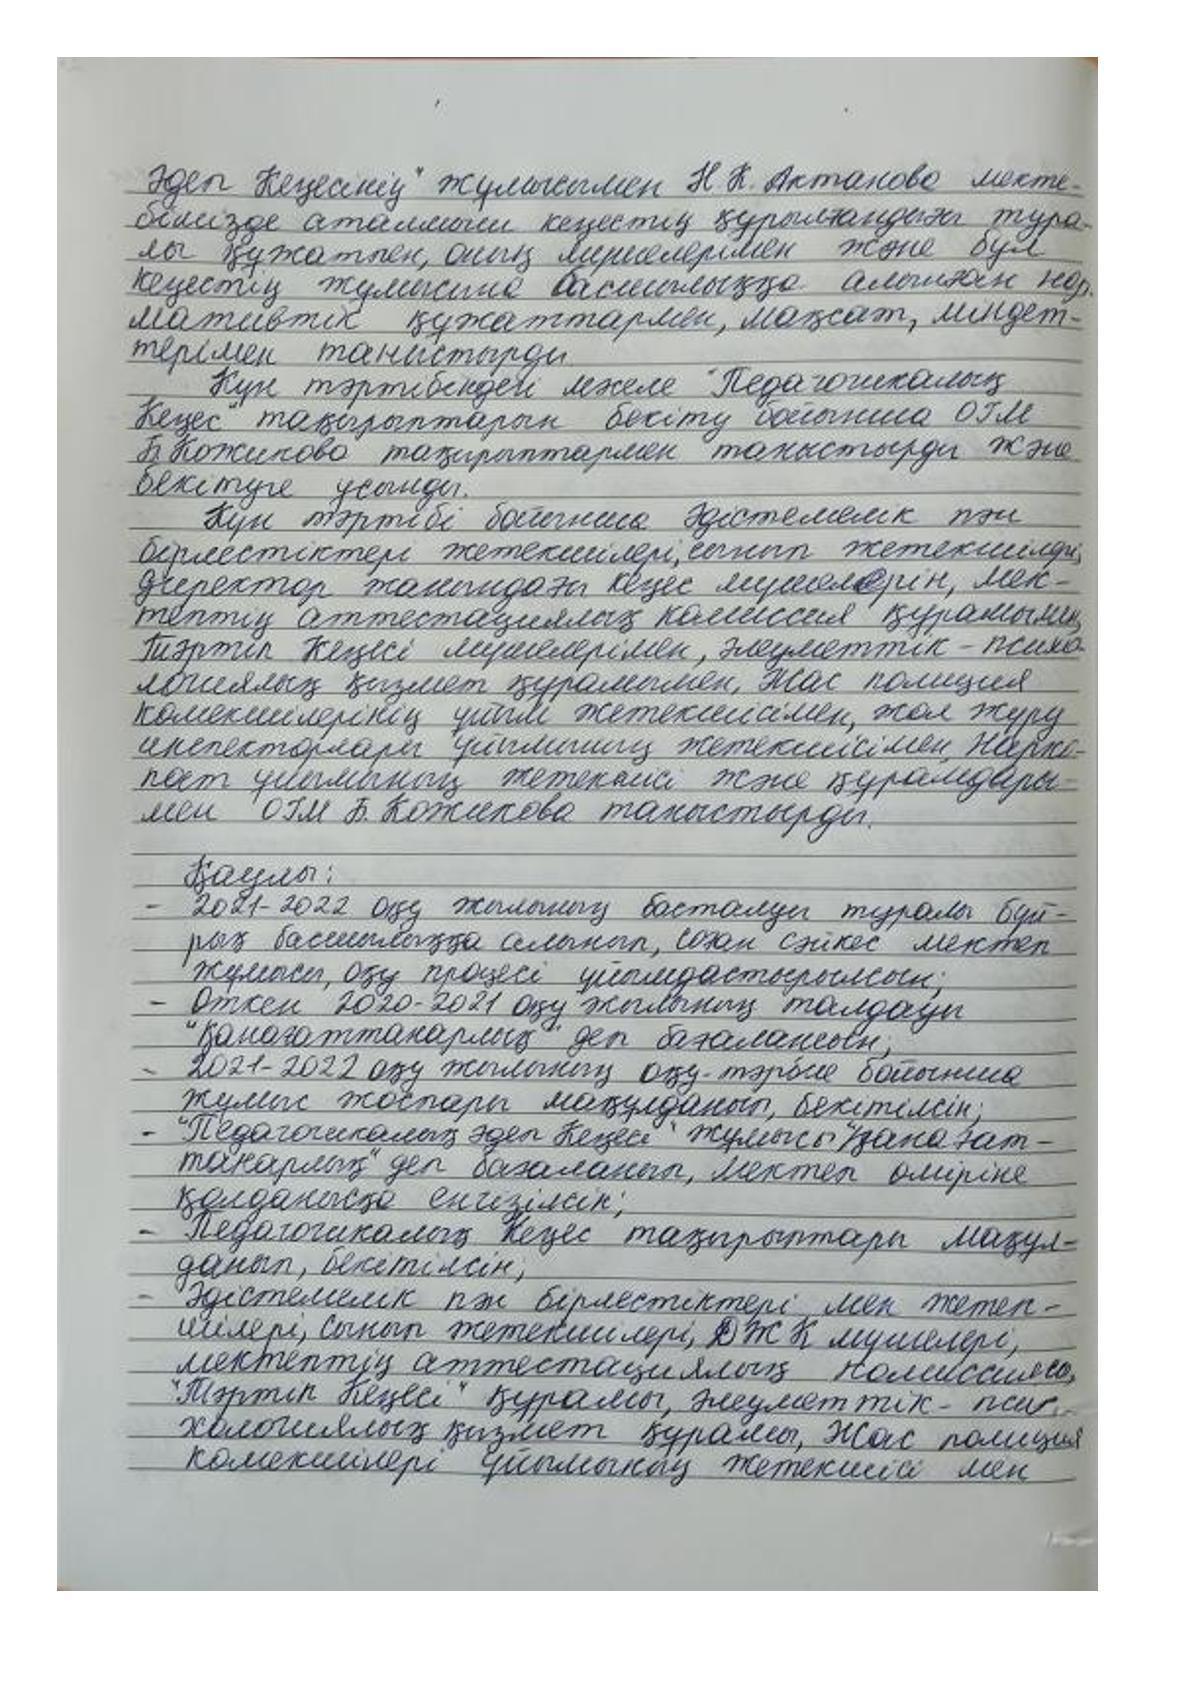 Әдеп Кеңесінің" жұмысымен Н.К. Актанова мекте-
бімізде аталмыш кеңестің құрылғандығы тура-
лы құжатпен, оның мүшелерімен және бұл
кеңестің жұмысына басшылыққа алынған нор-
мативтік құжаттармен, мақсат, міндет-
терімен таныстырды.
Күн тәртібінден мәселе "Педагогикалық
Кеңес" тақырыптарын бекіту бойынша ОІМ
Б. Кожикова тақырыптармен таныстырды және
бекітуге ұсынды.
Күн тәртібі бойынша Әдістемелік пән
бірлестіктері жетекшілері, сынып жетекшілері,
директор жанындағы кеңес мүшелерін, мек-
тептің аттестациялық комиссия құрамымен,
Тәртіп Кеңесі мүшелерімен, әлеуметтік-психо-
логиялық қызмет құрамымен, Жас полиция
көмекшілерінің ұйым жетекшісімен, жол жүру
инспекторлары ұйымының жетекшісімен, Нарко-
пост ұйымының жетекшісі және құрамдары-
мен ОІМ Б. Кожикова таныстырды.
Қаулы:
- 2021-2022 оқу жылының басталуы туралы бұй-
рық басшылыққа алынып, соған сәйкес мектеп
жұмысы, оқу процесі ұйымдастырылсын;
- Өткен 2020-2021 оқу жылының талдауы
"қанағаттанарлық" деп бағалансын;
- 2021-2022 оқу жылының оқу-тәрбие бойынша
жұмыс жоспары мақұлданып, бекітілсін;
- "Педагогикалық әдеп Кеңесі" жұмысы "қанағат-
танарлық" деп бағаланып, мектеп өміріне
қолданысқа енгізілсін;
- Педагогикалық Кеңес тақырыптары мақұл-
данып, бекітілсін;
- Әдістемелік пән бірлестіктері мен жетек-
шілері, сынып жетекшілері, ДЖК мүшелері,
мектептің аттестациялық комиссиясы,
"Тәртіп Кеңесі" құрамы, әлеуметтік-пси-
хологиялық қызмет құрамы, Жас полиция
көмекшілері ұйымының жетекшісі мен